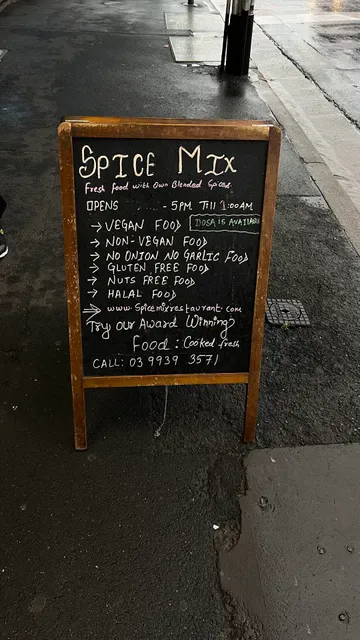 SPICE MIX
Fresh food with Own Blended Spices
OPENS - 5PM Till 1:00AM
→ VEGAN FOOD
DOSA IS AVAILABLE
→ NON-VEGAN FOOD
→ NO ONION NO GARLIC FOOD
→ GLUTEN FREE FOOD
→ NUTS FREE FOOD
→ HALAL FOOD
→ www.Spicemixrestaurant.com
Try our Award Winning?
Food : Cooked fresh
CALL: 03 9939 3571